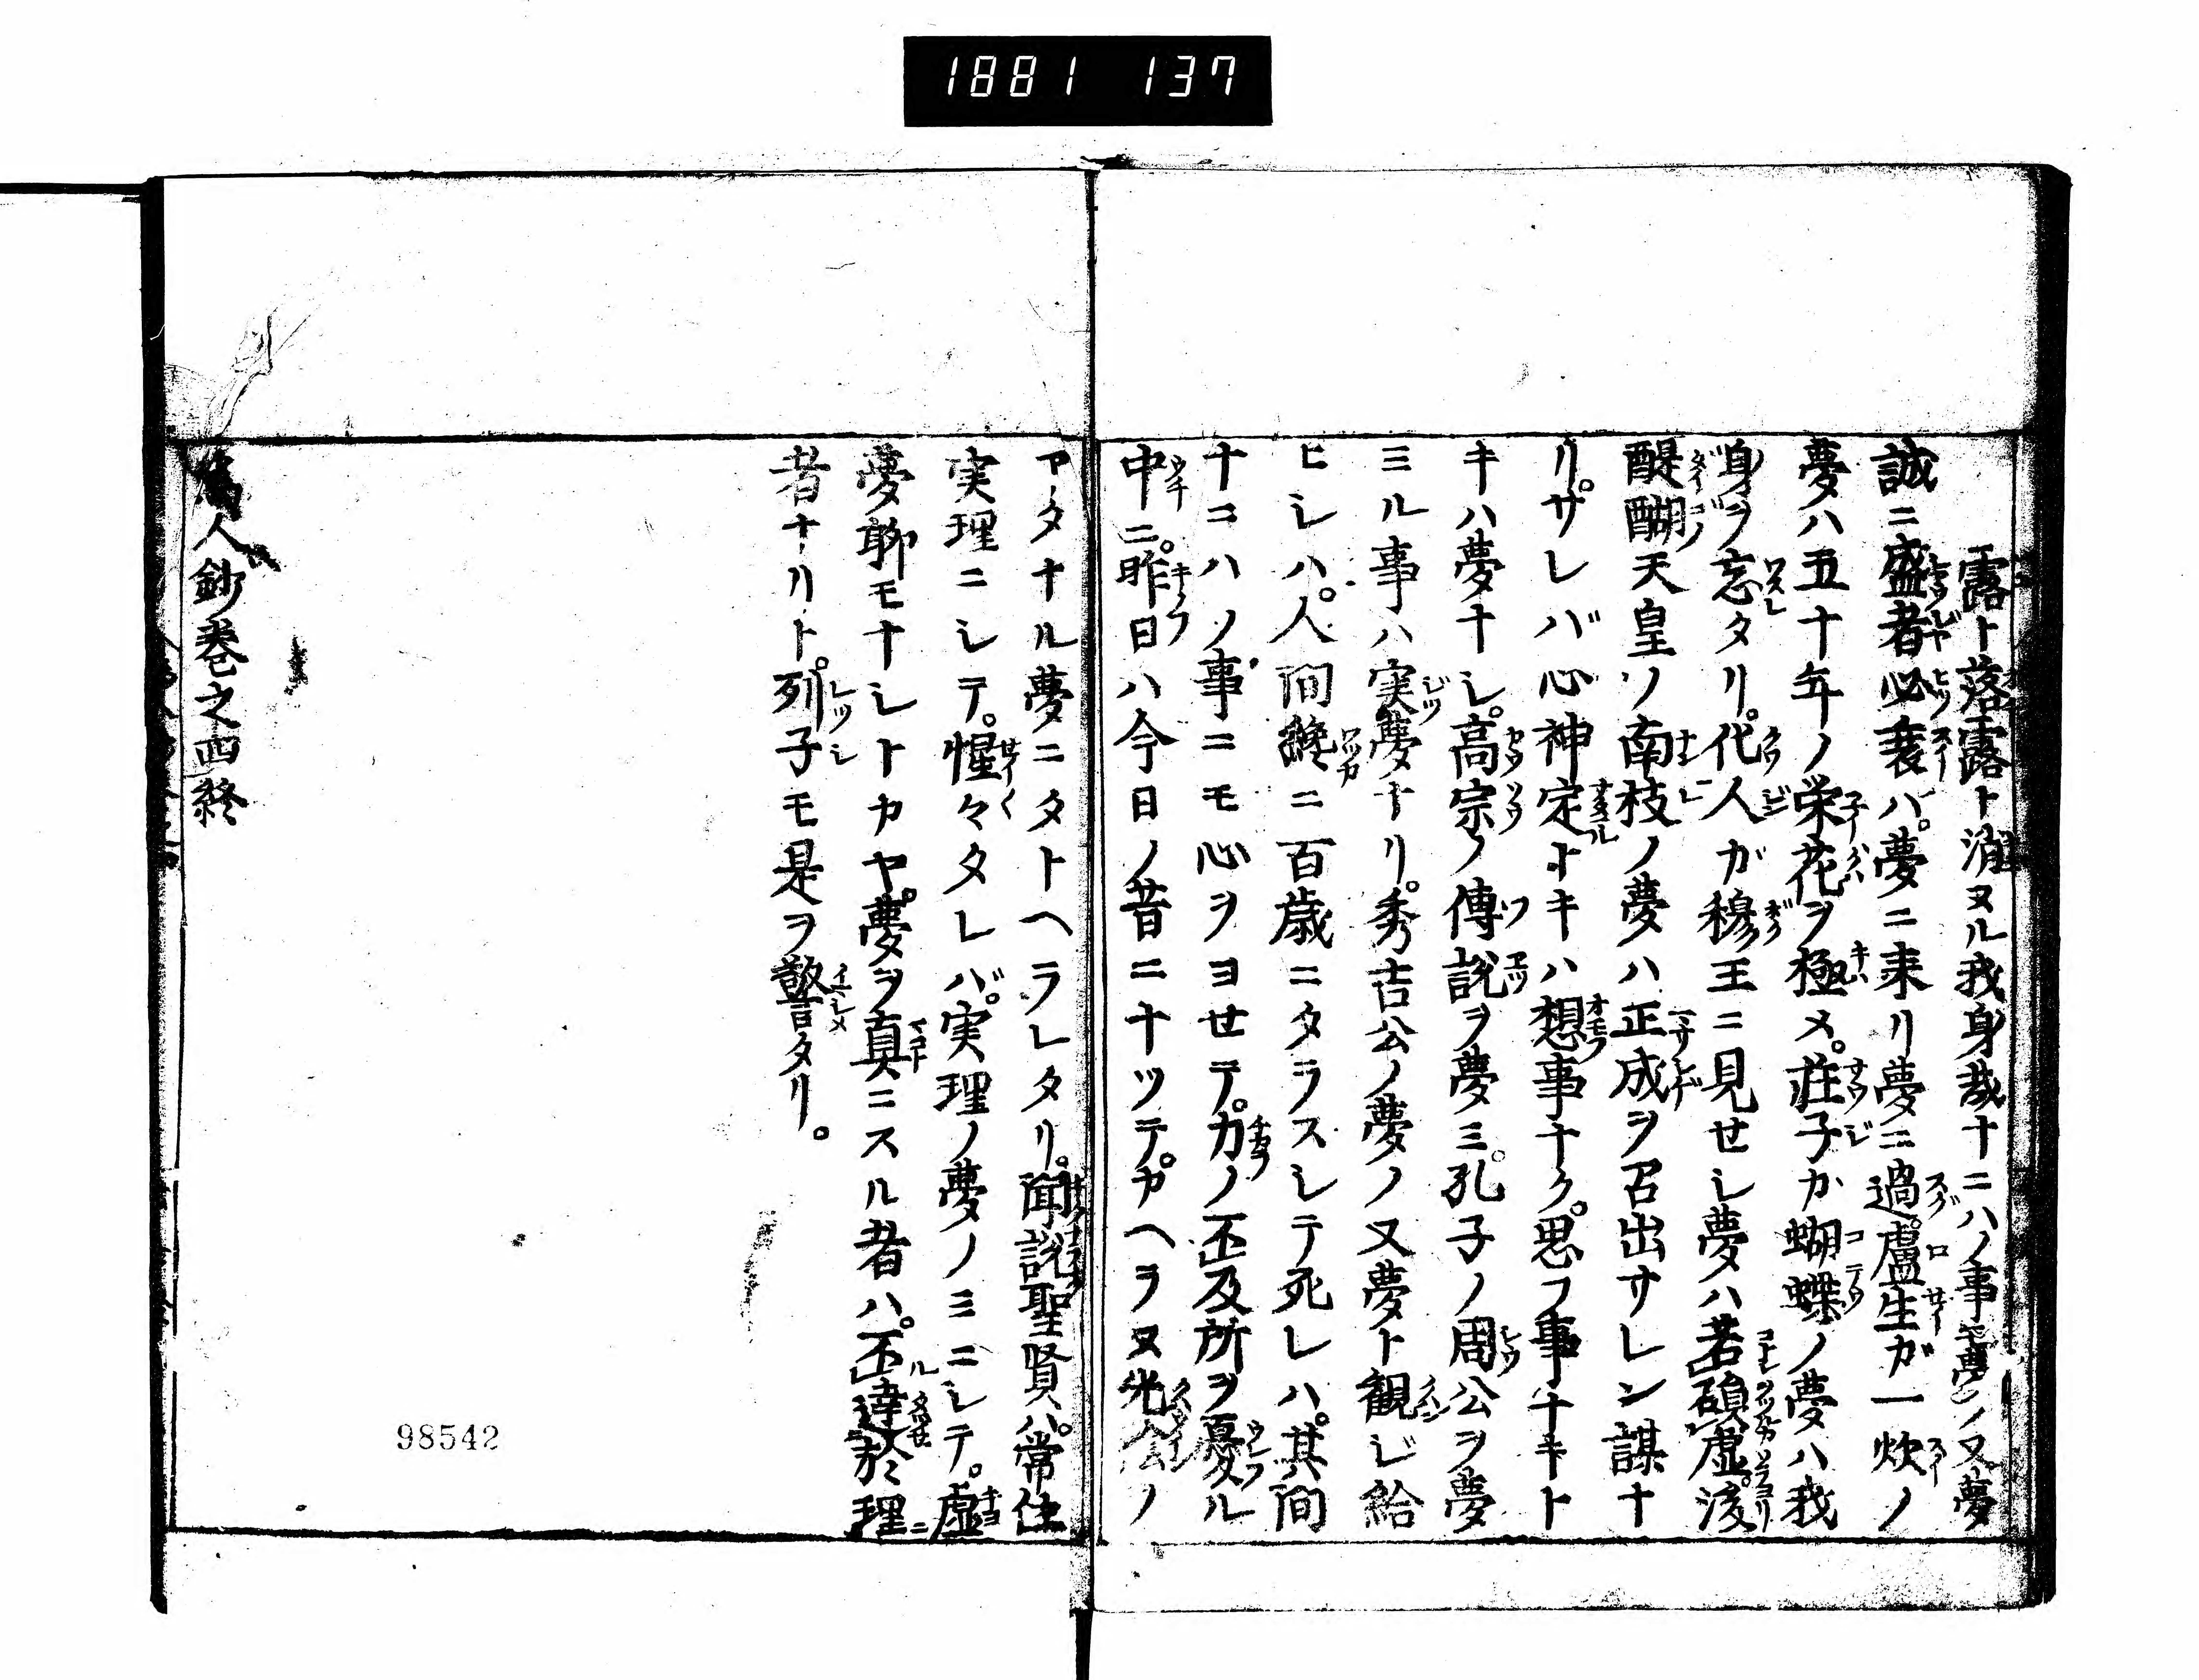 1881 137
露ト落露ト消ヌル我身哉ナニハノ事モ夢ノ又夢
誠ニ盛者必衰ハ。夢ニ来リ夢ニ過。盧生ガ一炊ノ
夢ハ五十年ノ栄花ヲ極メ。荘子カ蝴蝶ノ夢ハ我
身ヲ忘タリ。化人ガ穆王ニ見せシ夢ハ若碩虚。後
醍醐天皇ノ南枝ノ夢ハ正成ヲ召出サレン謀ナ
リ。サレバ心神定ナキハ想事ナク。思フ事ナキト
キハ夢ナシ。高宗ノ傳説ヲ夢ミ。孔子ノ周公ヲ夢
ミル事ハ実夢ナリ。秀吉公ノ夢ノ又夢ト観ジ給
ヒシハ。人間纔ニ百歳ニタラスシテ死レハ。其間
ナニハノ事ニモ心ヲヨせテ。力ノ不及所ヲ憂ル
中ニ。昨日ハ今日ノ昔ニナツテ。カヘラヌ光陰ノ
アタナル夢ニタトヘラレタリ。聞説聖賢ハ。常住
実理ニシテ。惺々タレバ。実理ノ夢ノミニシテ。虚
夢聊モナシトカヤ。夢ヲ真ニスル者ハ。不達於理
者ナリト。列子モ是ヲ警タリ。
人鈔巻之四終
98542